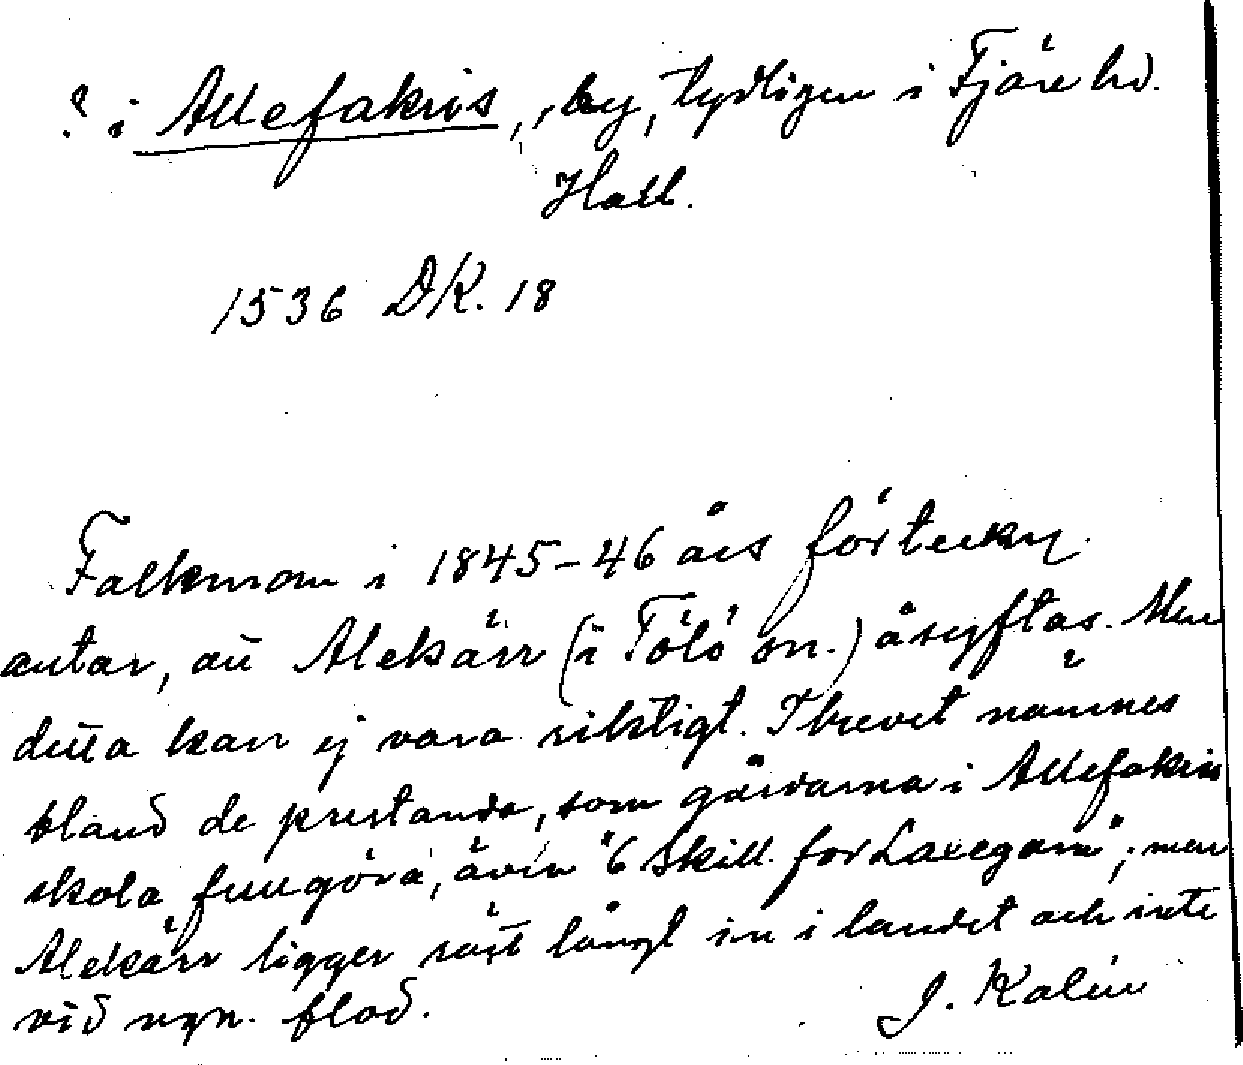 ? i Allefakris, by, tydligen i Fjäre hd.
Hall.
1536 DK. 18
Falkman i 1845-46 års förteckn.
antar, att Alekärr (i Tölö sn.) åsyftas. Men
detta kan ej vara riktigt. I brevet nämnes
bland de prestanda, som gårdarna i Allefakris
skola fullgöra, även "6 Skill. for Laxegarn"; men
Alekärr ligger rätt långt in i landet och inte
vid ngn. flod.
J. Kalén